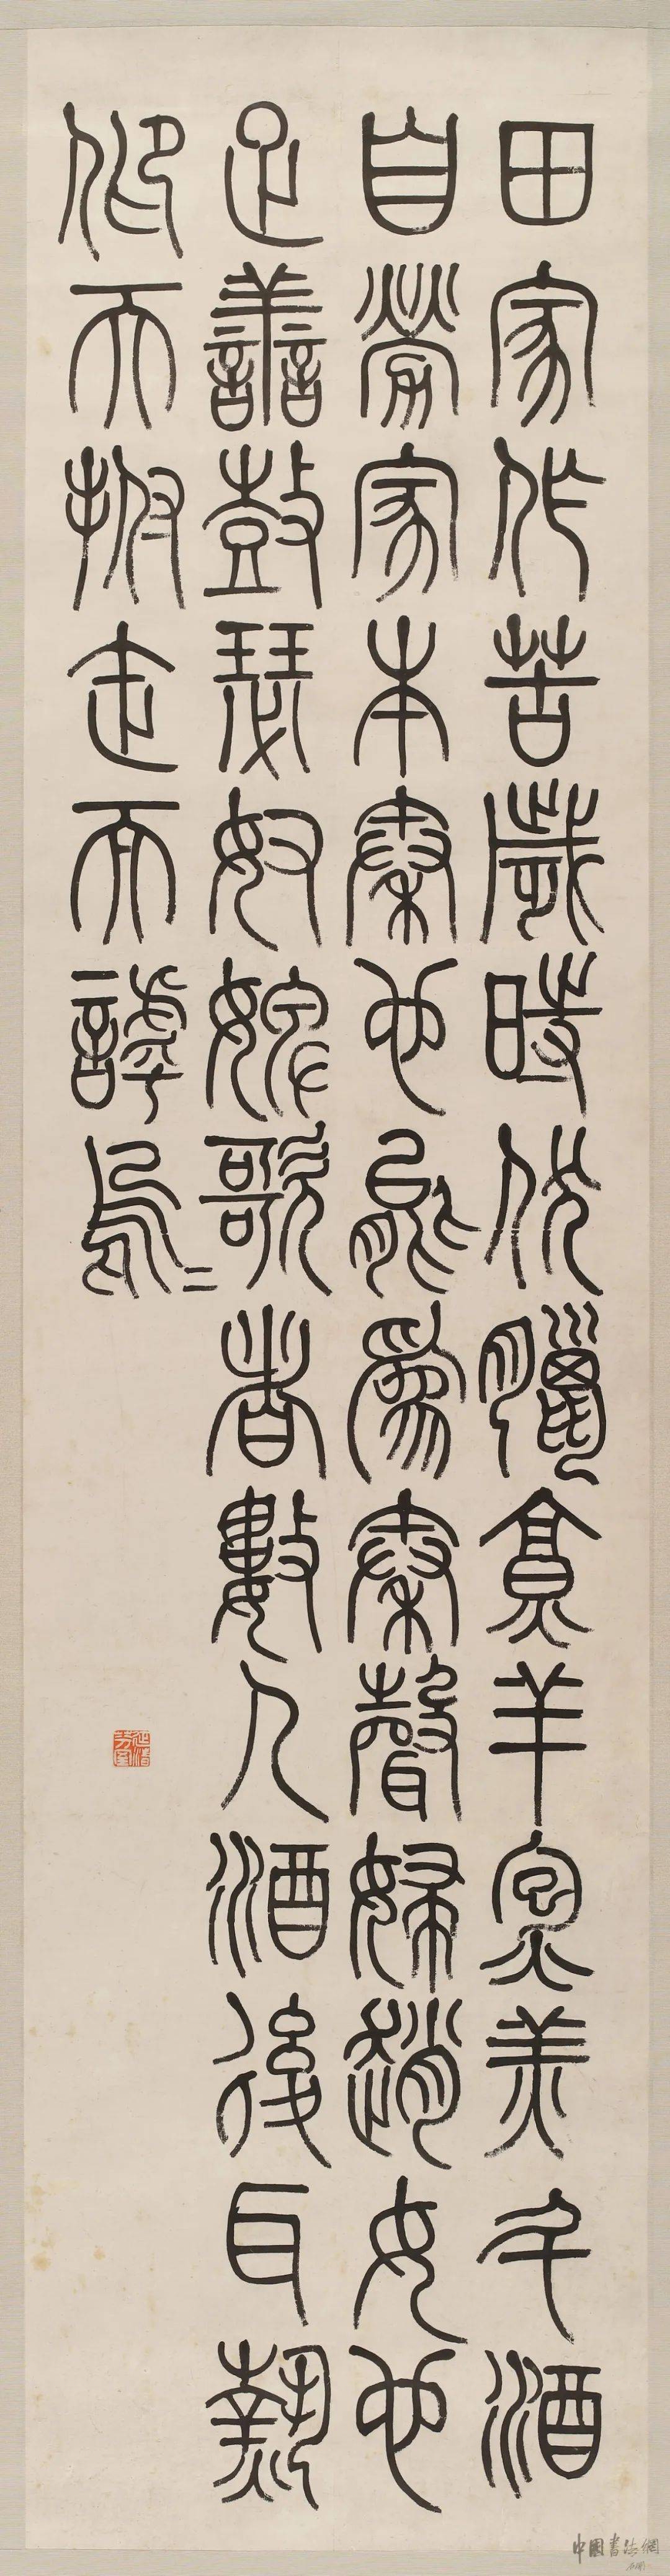 田家作苦歲時伏臘亨羊炰羔斗酒
自勞家本秦也能為秦聲婦趙女也
疋善鼓瑟奴婢歌者數人酒後耳熱
仰天拊缶而謼烏=
中國書法網